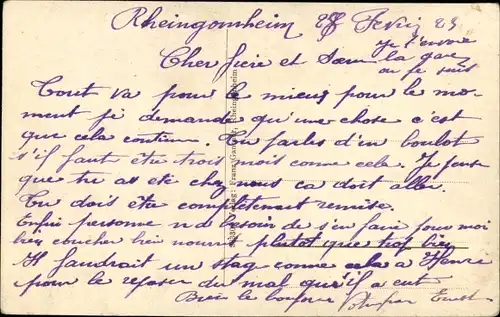 Rheingonheim 28 Fevrie 23
je t'envoie
Cher frère et Sœur la gare
ou je suis
Tout va pour le mieux pour le mo-
ment je demande qu'une chose c'est
que cela continu. Tu parles d'un boulot
s'il faut être trois mois come cela. Je pense
que tu as été chez nous ca doit aller.
Tu dois être completement remise.
Enfin personne n'a besoin de s'en faire pour moi
bien coucher bien nourri plutot que trop bien
Il faudrait un stag comme cela a Henri
pour le reposer du mal qu'il a eut
Bien le bonjour Ernest
Verlag: Franz Rheingönheim